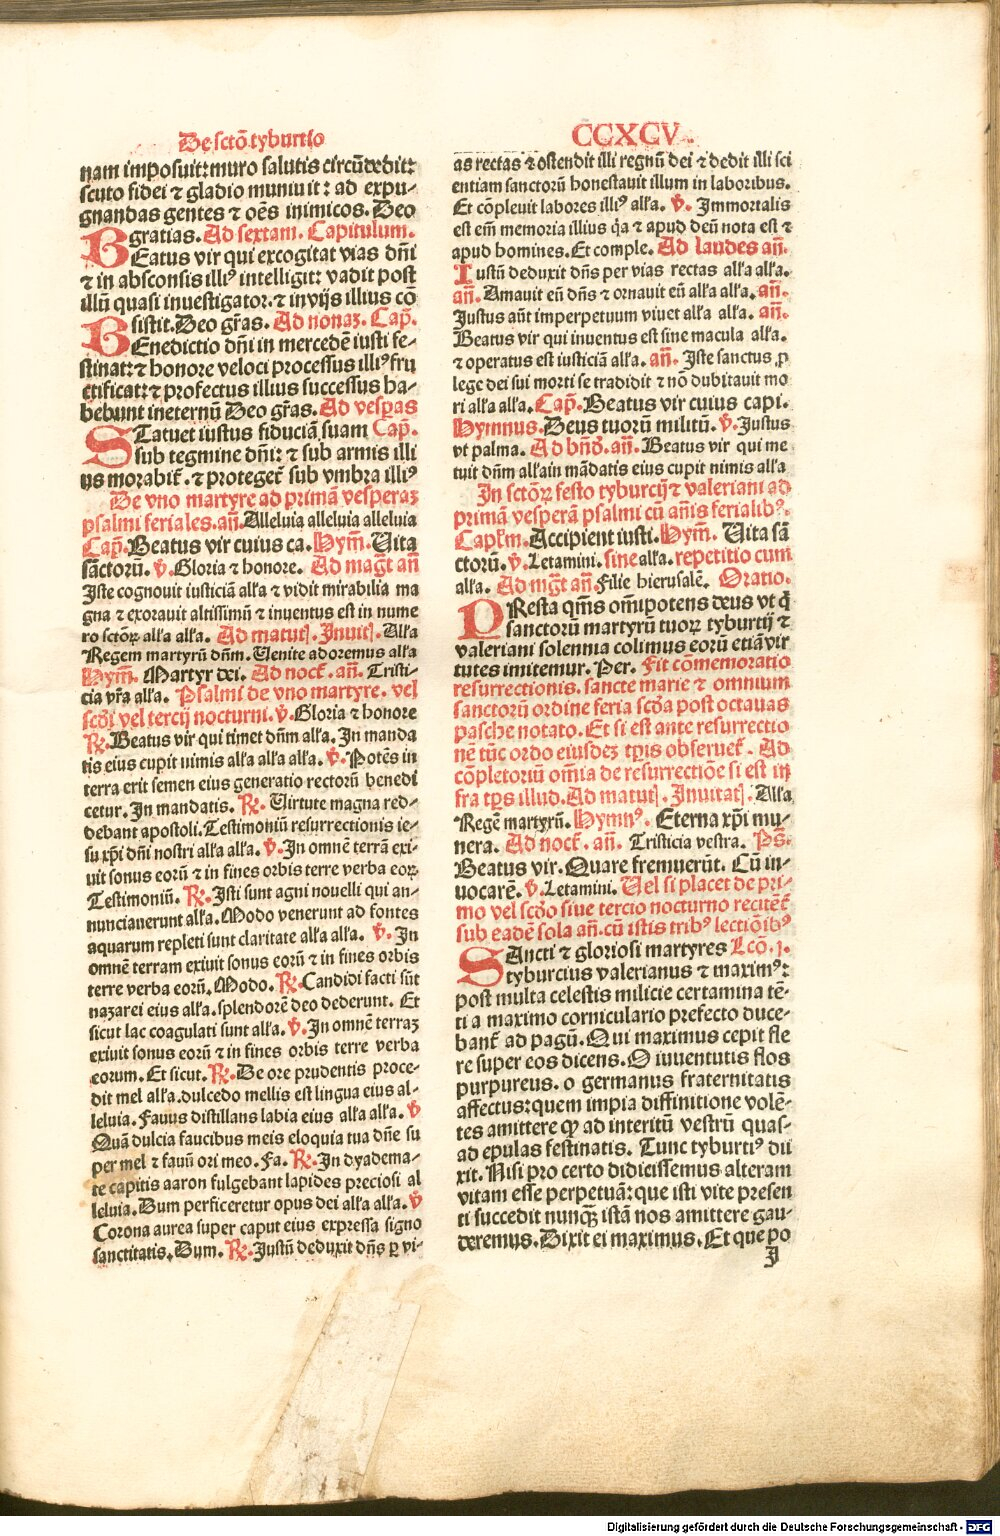 De sctõ tyburtio
nam imposuit: muro salutis circũdedit:
scuto fidei ⁊ gladio muniuit: ad expu-
gnandas gentes ⁊ oẽs inimicos. Deo
gratias. Ad sextam. Capitulum.
BEatus vir qui excogitat vias dñi
⁊ in absconsis illiꝰ intelligit: vadit post
illũ quasi inuestigator. ⁊ in vijs illius cõ
sistit. Deo gr̃as. Ad nonaȝ. Cap̃.
BEnedictio dñi in mercedẽ iusti fe-
stinat: ⁊ honore veloci processus illiꝰ fru
ctificat: ⁊ profectus illius successus ha-
bebunt ineternũ Deo gr̃as. Ad vesp̃as
STatuet iustus fiduciã suam Cap̃.
sub tegmine dñi: ⁊ sub armis illi
us morabit̃. ⁊ proteget̃ sub vmbra illiꝰ
De vno martyre ad primã vesperaȝ
psalmi feriales. añ. Alleluia alleluia alleluia
Cap̃. Beatus vir cuius ca. Hym̃. Uita
sãctorũ. ℣. Gloria ⁊ honore. Ad mag̃t añ
Iste cognouit iusticiã alľa ⁊ vidit mirabilia ma
gna ⁊ exorauit altissimũ ⁊ inuentus est in nume
ro sctõꝝ alľa alľa. Ad matut̃. Inuit̃. Alľa
Regem martyrũ dñm. Uenite adoremus alľa
Hym̃. Martyr dei. Ad noct̃. añ. Tristi-
cia vr̃a alľa. Psalmi de vno martyre. vel
scďi vel tercij nocturni. ℣. Gloria ⁊ honore
℞. Beatus vir qui timet dñm alľa. In manda
tis eius cupit nimis alľa alľa alľa. ℣. Potẽs in
terra erit semen eius generatio rectorũ benedi
cetur. In mandatis. ℞. Uirtute magna red-
debant apostoli. Testimoniũ resurrectionis ie-
su xp̃i dñi nostri alľa alľa. ℣. In omnẽ terrã exi-
uit sonus eorũ ⁊ in fines orbis terre verba eoꝝ.
Testimoniũ. ℞. Isti sunt agni nouelli qui an-
nunciauerunt alľa. Modo venerunt ad fontes
aquarum repleti sunt claritate alľa alľa. ℣. In
omnẽ terram exiuit sonus eorũ ⁊ in fines orbis
terre verba eorũ. Modo. ℞. Candidi facti sũt
nazarei eius alľa. splendorẽ deo dederunt. Et
sicut lac coagulati sunt alľa. ℣. In omnẽ terraȝ
exiuit sonus eorũ ⁊ in fines orbis terre verba
eorum. Et sicut. ℞. De ore prudentis proce-
dit mel alľa. dulcedo mellis est lingua eius al-
leluia. Fauus distillans labia eius alľa alľa. ℣
Quã dulcia faucibus meis eloquia tua dñe su
per mel ⁊ fauũ ori meo. Fa. ℞. In dyadema-
te capitis aaron fulgebant lapides preciosi al
leluia. Dum perficeretur opus dei alľa alľa. ℣
Corona aurea super caput eius expressa signo
sanctitatis. Dum. ℞. Justũ deduxit dñs ꝑ vi-
CCXCV.
as rectas ⁊ ostendit illi regnũ dei ⁊ dedit illi sci
entiam sanctorũ honestauit illum in laboribus.
Et cõpleuit labores illiꝰ alľa. ℣. Immortalis
est em̃ memoria illius q̃a ⁊ apud deũ nota est ⁊
apud homines. Et comple. Ad laudes añ.
Iustũ deduxit dñs per vias rectas alľa alľa.
añ. Amauit eũ dñs ⁊ ornauit eũ alľa alľa. añ.
Justus aũt imperpetuum viuet alľa alľa. añ.
Beatus vir qui inuentus est sine macula alľa.
⁊ operatus est iusticiã alľa. añ. Iste sanctus ꝓ
lege dei sui morti se tradidit ⁊ nõ dubitauit mo
ri alľa alľa. Cap̃. Beatus vir cuius capi.
Hymnus. Deus tuorũ militũ. ℣. Justus
vt palma. Ad bñď. añ. Beatus vir qui me
tuit dñm alľain mãdatis eius cupit nimis alľa
In sctõꝝ festo tyburcij ⁊ valeriani ad
primã vesperã psalmi cũ añis ferialibꝰ.
Capľm. Accipient iusti. Hym̃. Uita sã
ctorũ. ℣. Letamini. sine alľa. repetitio cum
alľa. Ad mg̃t añ. Filie hierusalẽ. Oratio.
PResta q̃ms om̃ipotens deus vt q̃
sanctorũ martyrũ tuoꝝ tyburtij ⁊
valeriani solennia colimus eorũ etiã vir
tutes imitemur. Per. Fit cõmemoratio
resurrectionis. sancte marie ⁊ omnium
sanctorũ ordine feria scďa post octauas
pasche notato. Et si est ante resurrectio
nẽ tũc ordo eiusdeȝ tp̃is obseruet̃. Ad
cõpletoriũ om̃ia de resurrectiõe si est in
fra tp̃s illud. Ad matut̃. Inuitat̃. Alľa
Regẽ martyrũ. Hymnꝰ. Eterna xp̃i mu-
nera. Ad noct̃. añ. Tristicia vestra. Ps̃.
Beatus vir. Quare fremuerũt. Cũ in-
uocarẽ. ℣. Letamini. Uel si placet de pri-
mo vel scďo siue tercio nocturno recitẽt̃
sub eadẽ sola añ. cũ istis tribꝰ lectiõibꝰ
SAncti ⁊ gloriosi martyres Lcõ. j.
tyburcius valerianus ⁊ maximꝰ:
post multa celestis milicie certamina tẽ-
ti a maximo corniculario prefecto duce-
bant̃ ad pagũ. Qui maximus cepit fle
re super eos dicens. O iuuentutis flos
purpureus. o germanus fraternitatis
affectus: quem impia diffinitione volẽ-
tes amittere ꝙ ad interitũ vestrũ quas-
ad epulas festinatis. Tunc tyburtiꝰ di
xit. Nisi pro certo didicissemus alteram
vitam esse perpetuã: que isti vite presen
ti succedit nunꝗ̃ istã nos amittere gau-
deremus. Dixit ei maximus. Et que po
J
Digitalisierung gefördert durch die Deutsche Forschungsgemeinschaft - DFG